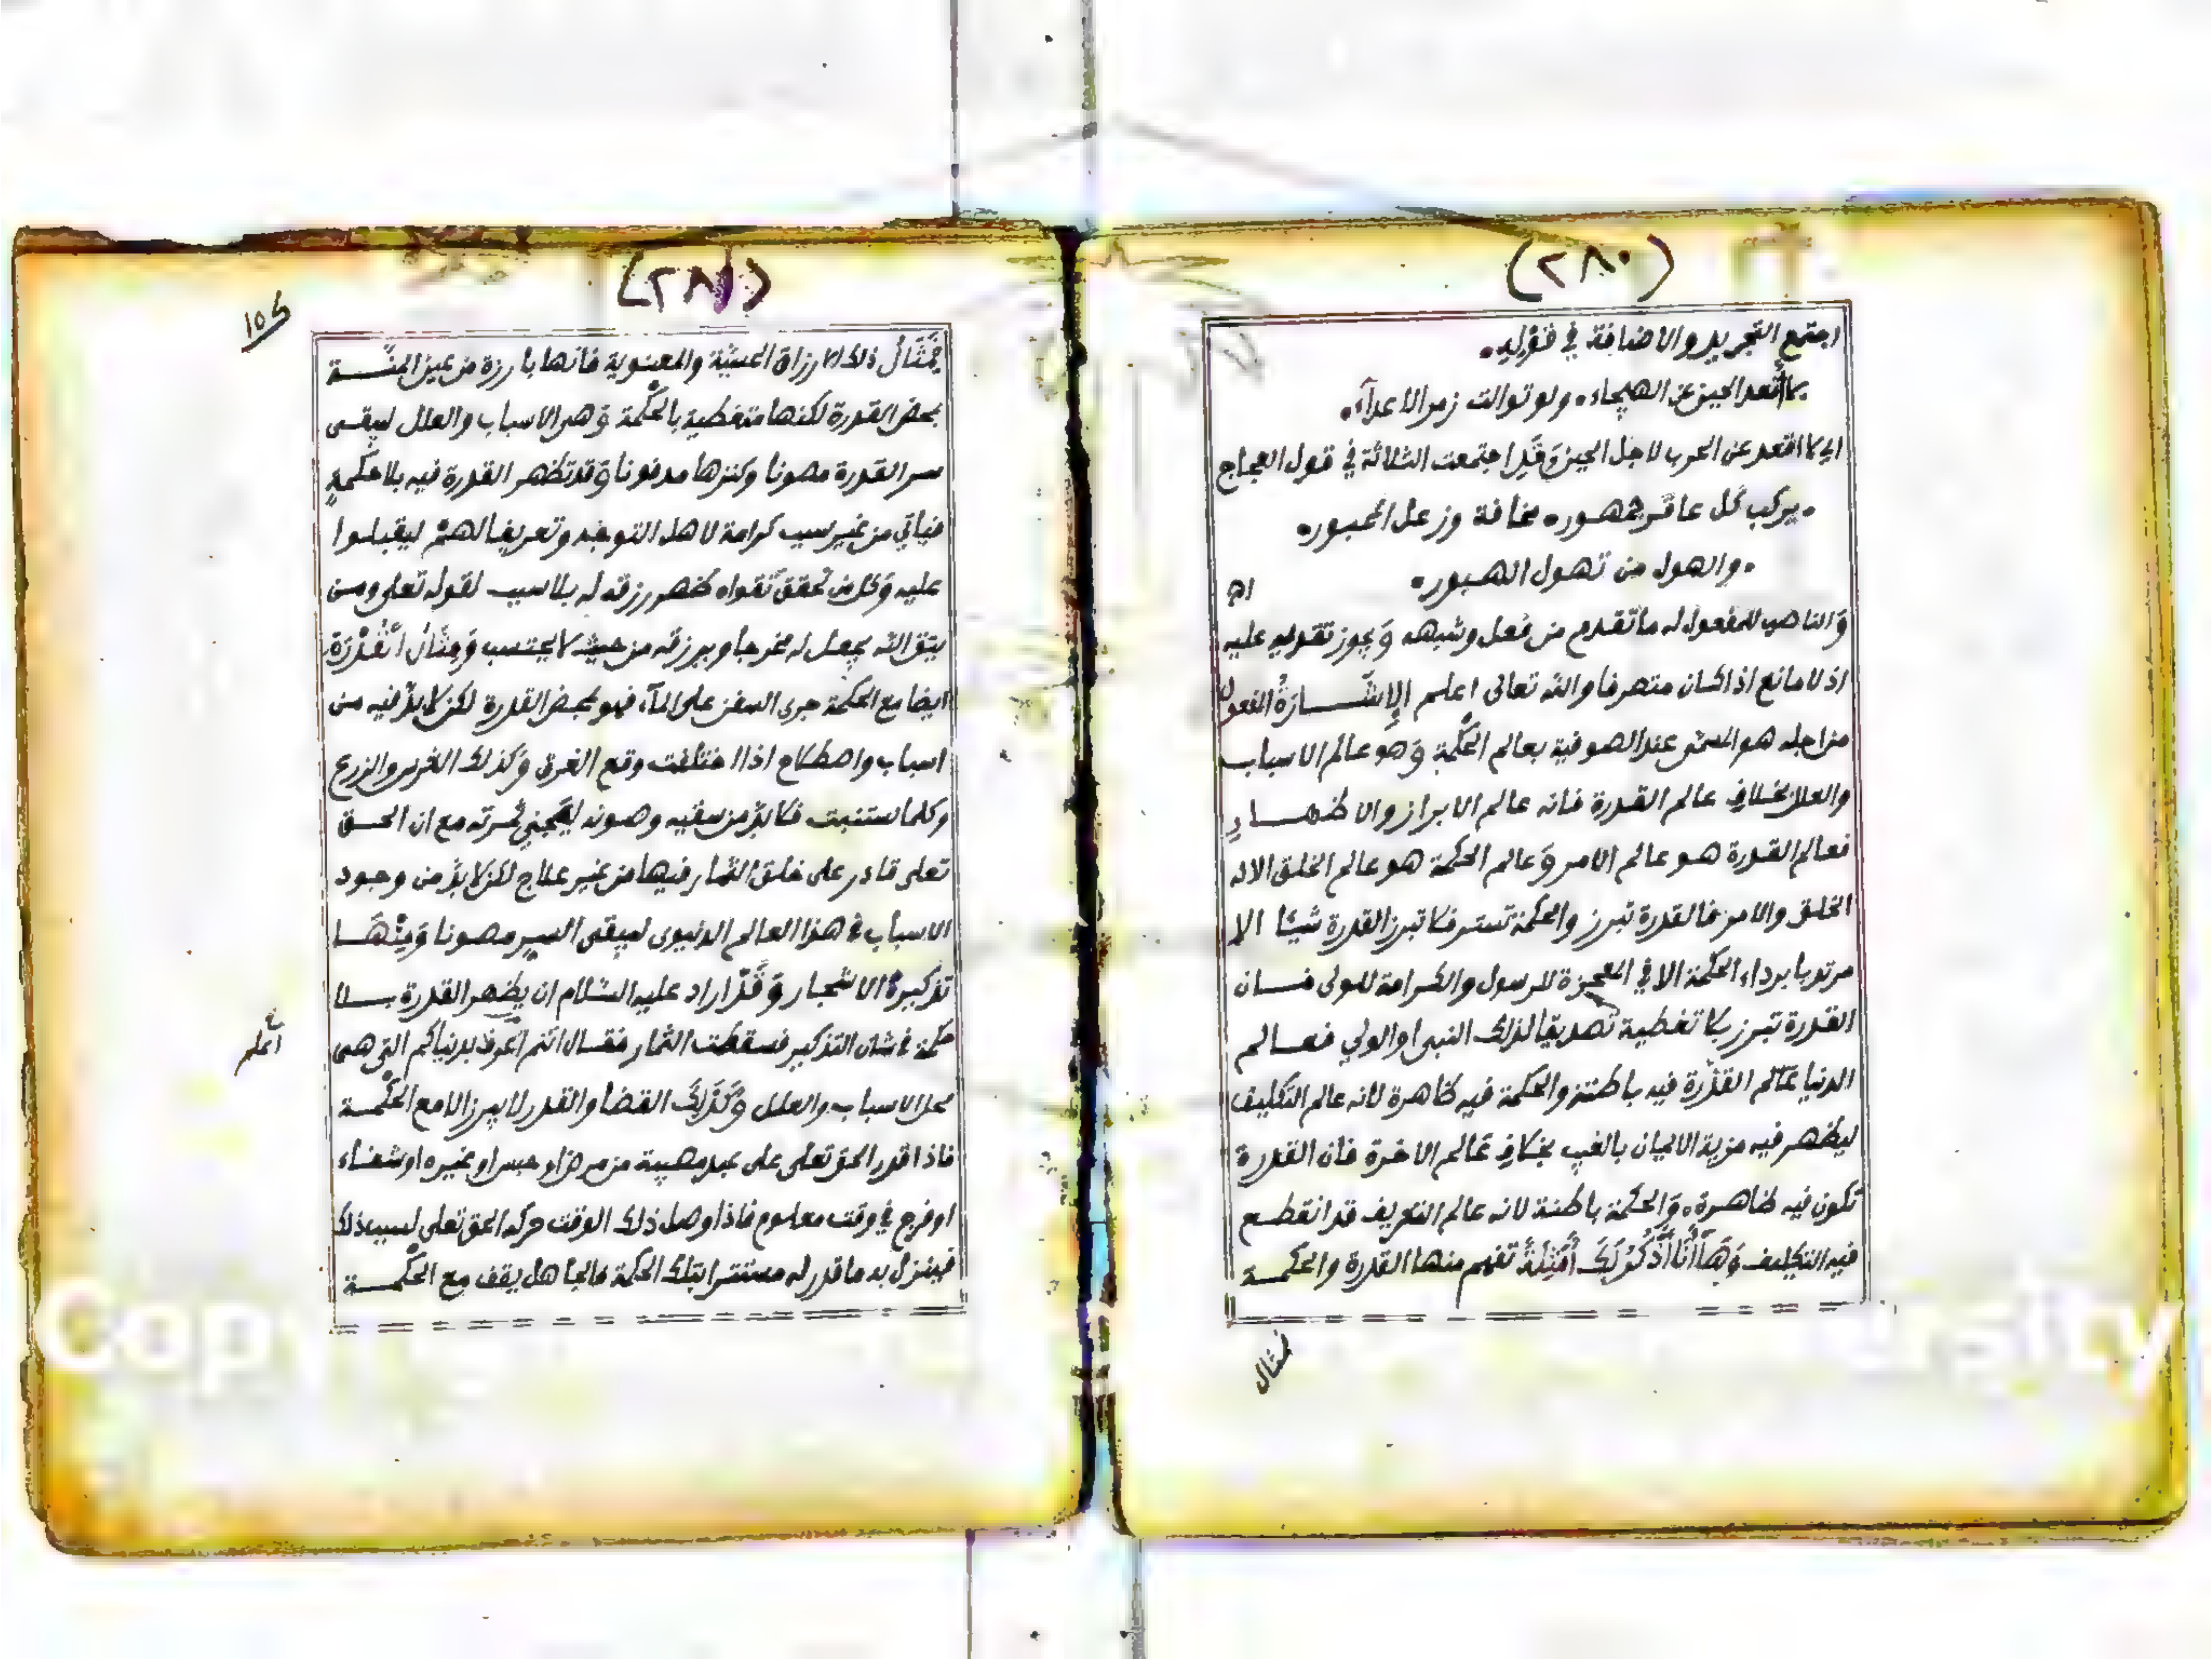 (٢٨٠)
اجتمع التجريد والاضافة في قوله
لا أقعد الجبن عن الهيجاء ولو توالت زمر الاعدآء
اي لا اقعد عن الحرب لاجل الجبن وقد اجتمعت الثلاثة في قول العجاج
يركب كل عاقر جمهور مخافة وزعل المحبور
والهول من تهول الهبور
اﻫ
والناصب للمفعول له ما تقدم من فعل وشبهه ويجوز تقديمه عليه
اذ لا مانع اذا كان متصرفا والله تعالى اعلم الإشارة المفعول
من اجله هو المسمى عند الصوفية بعالم الحكمة وهو عالم الاسباب
والعلل بخلاف عالم القدرة فانه عالم الابراز والاظهار
فعالم القدرة هو عالم الامر وعالم الحكمة هو عالم الخلق الا له
الخلق والامر فالقدرة تبرز والحكمة تستر فلا تبرز القدرة شيئا الا
مرتديا برداء الحكمة الا في المعجزة للرسول والكرامة للولى فان
القدرة تبرز بلا تغطية تصديقا لذلك النبى او الولي فعالم
الدنيا عالم القدرة فيه باطنة والحكمة فيه ظاهرة لانه عالم التكليف
ليظهر فيه مزية الايمان بالغيب بخلاف عالم الاخرة فان القدرة
تكون فيه ظاهرة والحكمة باطنة لانه عالم التعريف قد انقطع
فيه التكليف وها أنا أذكر لك أمثلة تفهم منها القدرة والحكمة
فمثال
(٢٨١)
فمثال ذلك الارزاق الحسية والمعنوية فانها بارزة من عين المنة
بمحض القدرة لكنها متغطية بالحكمة وهى الاسباب والعلل ليبقى
سر القدرة مصونا وكنزها مدفونا وقد تظهر القدرة فيه بلا حكمة
فياتي من غير سبب كرامة لاهل التوجه وتعريفا لهم ليقبلوا
عليه وكل من تحقق تقواه ظهر رزقه له بلا سبب لقوله تعلى ومن
يتق الله يجعل له مخرجا ويرزقه من حيث لا يحتسب ومثال القدرة
ايضا مع الحكمة جرى السفن على المآء فهو بمحض القدرة لكن لا بد فيه من
اسباب واصطلاح اذا اختلفت وقع الغرق وكذلك الغرس والزرع
وكلما استنبت فلا بد من سقيه وصونه ليجني ثمرته مع ان الحق
تعلى قادر على خلق الثمار فيها من غير علاج لكن لا بد من وجود
الاسباب في هذا العالم الدنيوى ليبقى السر مصونا ومنها
تذكيرة الاشجار وقد اراد عليه السلام ان يظهر القدرة بلا
حكمة في شان التذكير فسقطت الثمار فقال انتم اعرف بدنياكم التى هى
محل الاسباب والعلل وكذلك القضا والقدر لا يبرز الا مع الحكمة
فاذا قدر الحق تعلى على عبد مصيبة من مرض او حبس او غيره او شفاء
او فرج في وقت معلوم فاذا وصل ذلك الوقت حركه الحق تعلى لسبب ذلك
فينزل به ما قدر له مستترا بتلك الحكمة فالجاهل يقف مع الحكمة